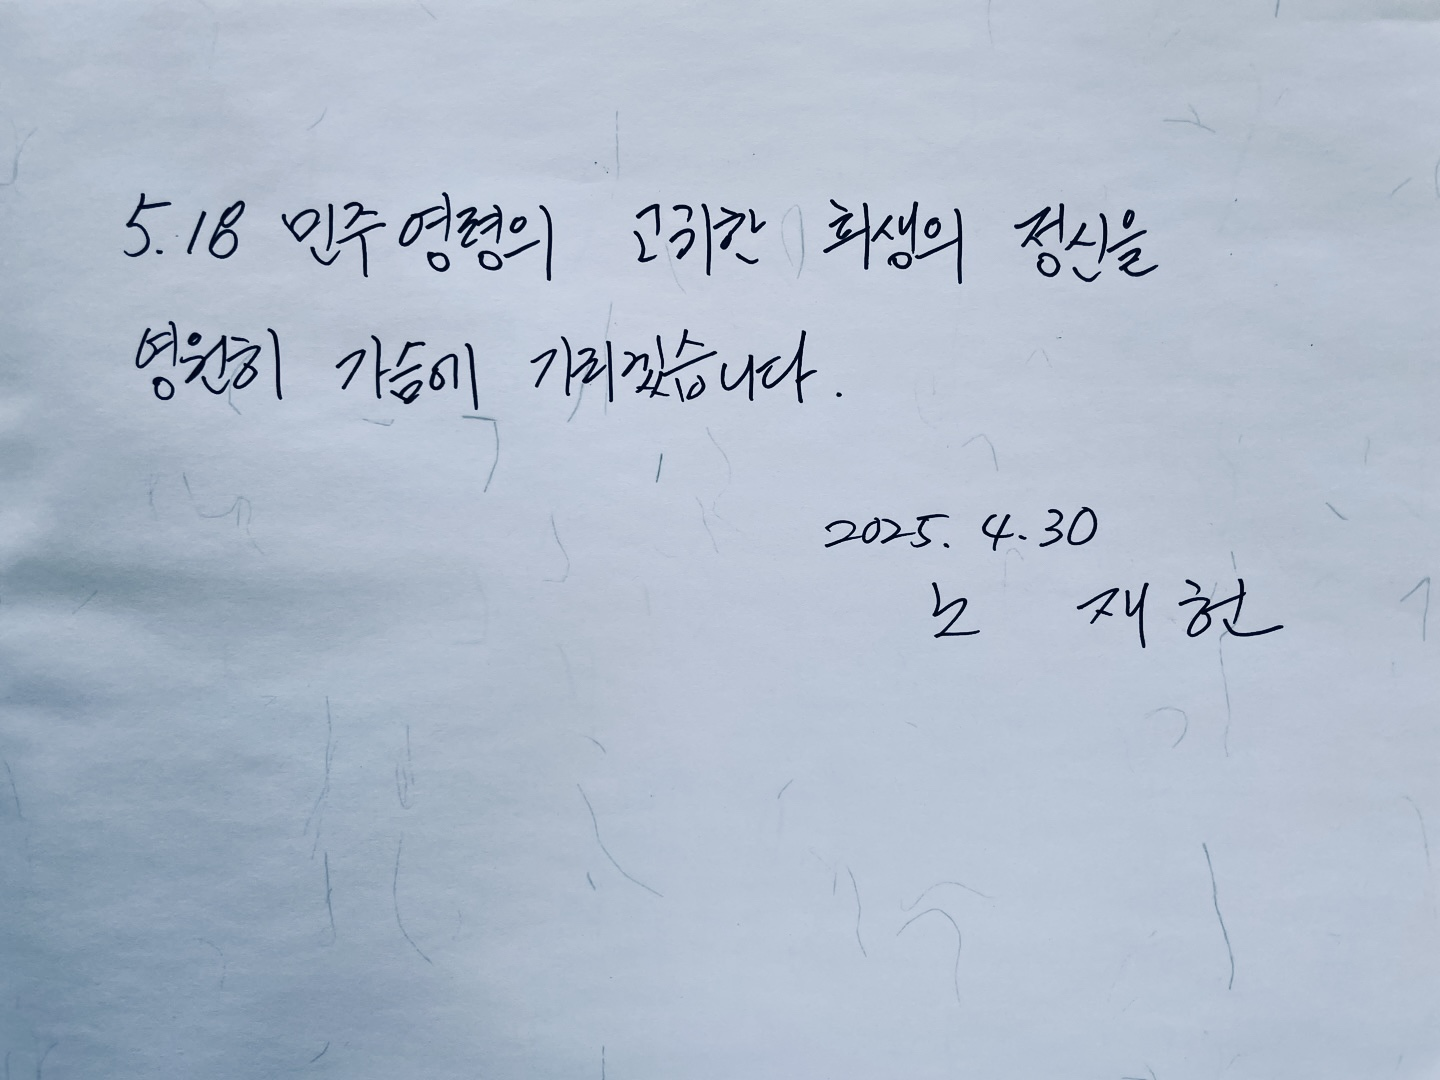 5.18 민주영령의 고귀한 희생의 정신을
영원히 가슴에 기리겠습니다.
2025. 4. 30
노 재 헌